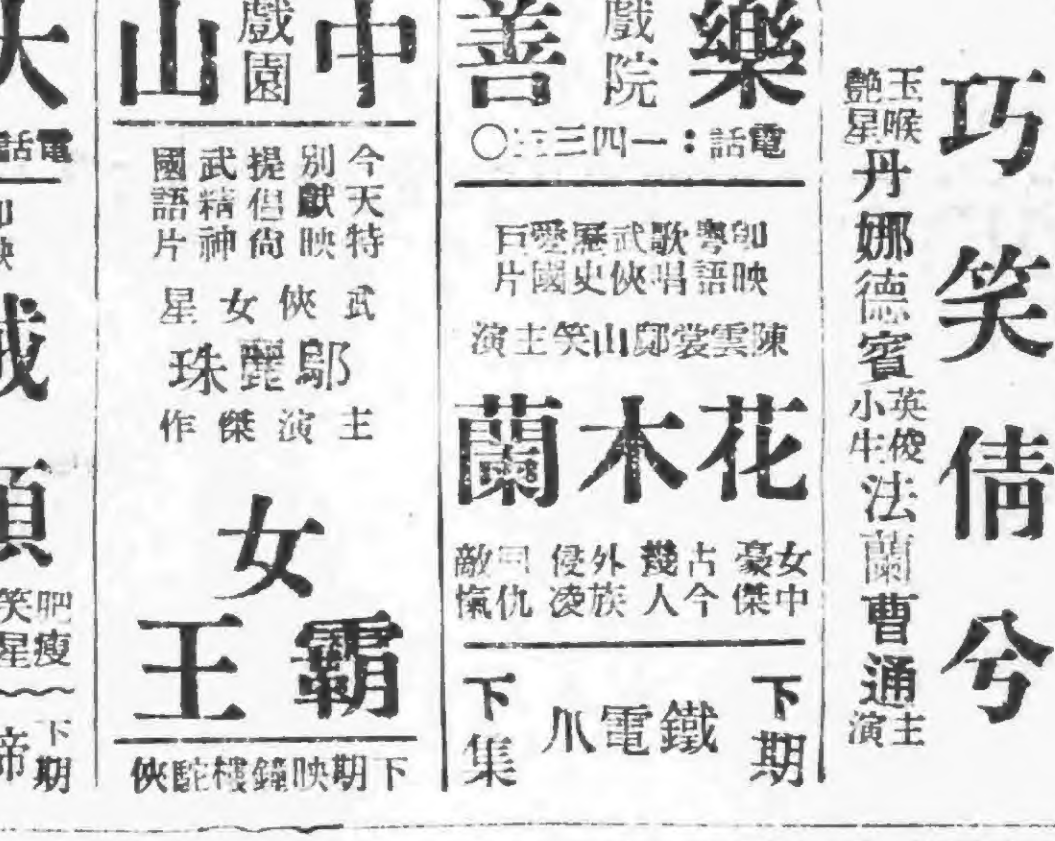 巧笑倩兮
玉喉艷星丹娜德賓
英俊小生法蘭曹通主演
樂善戲院
電話：一四三三〇
即映粵語歌唱武俠歷史愛國巨片
陳雲裳鄺山笑主演
花木蘭
女中豪傑
古今幾人
外族侵凌
同仇敵愾
下期
鐵電爪
下集
中山戲園
今天特別獻映提倡尙武精神國語片
武俠女星
鄔麗珠
主演傑作
女霸王
下期映鐘樓駝俠
大
電話
即映
肥瘦笑星
下期